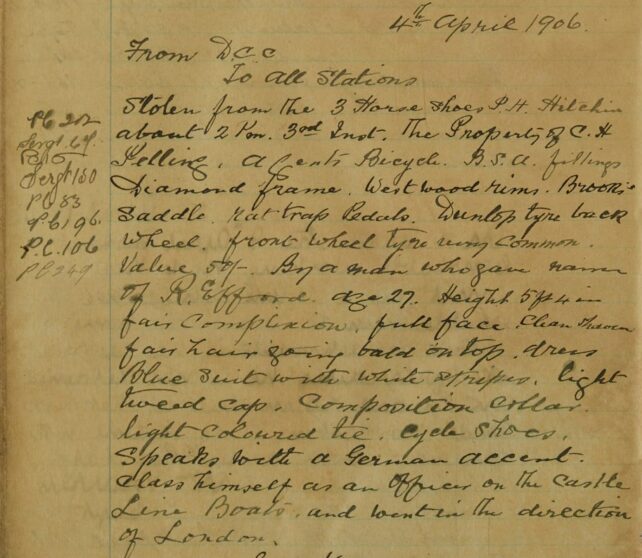 4th April 1906.
From D.C.C
To All Stations
Stolen from the 3 Horse Shoes P.H. Hitchin
about 2 Pm. 3rd Inst. the Property of C. H
Pelling. a Gents Bicycle. B.S.A. fittings
Diamond frame. Westwood rims. Brooks
Saddle. rat trap Pedals. Dunlop tyre back
wheel. front wheel tyre very Common.
Value 50/-. By a man who gave name
of R. Efford. age 27. Height 5ft 4 in
fair Complexion. full face. Clean Shaven
fair hair going bald on top. dress
Blue Suit with white stripes. light
tweed cap. Composition collar.
light Coloured tie. Cycle Shoes.
Speaks with a German accent.
Class himself as an Officer on the Castle
Line Boats. and went in the direction
of London.
PC 202
Sergt 64
Sergt 150
PC 83
PC 196.
P.C. 106
PC 249